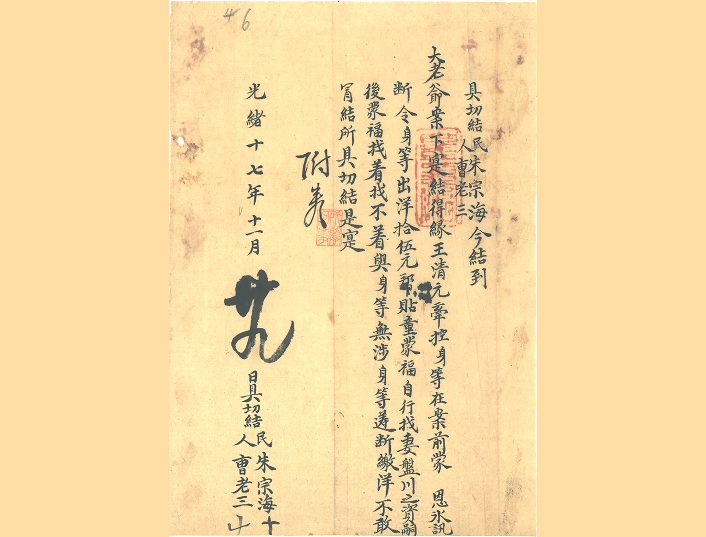 46
具切結民朱宗海今結到
人曹老三
大老爺案下寔結得緣王清元牽控身等在案前蒙 恩氷訊
断令身等出洋拾伍元帮貼童蒙福自行找妻盤川之資嗣
後蒙福找着找不着與身等無涉身等遵断繳洋不敢
冒結所具切結是寔
附卷
光緒十七年十一月
廿九
日具切結民朱宗海十
人曹老三